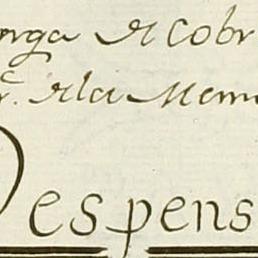 orga de Cobr
r. de la Mem
Despens